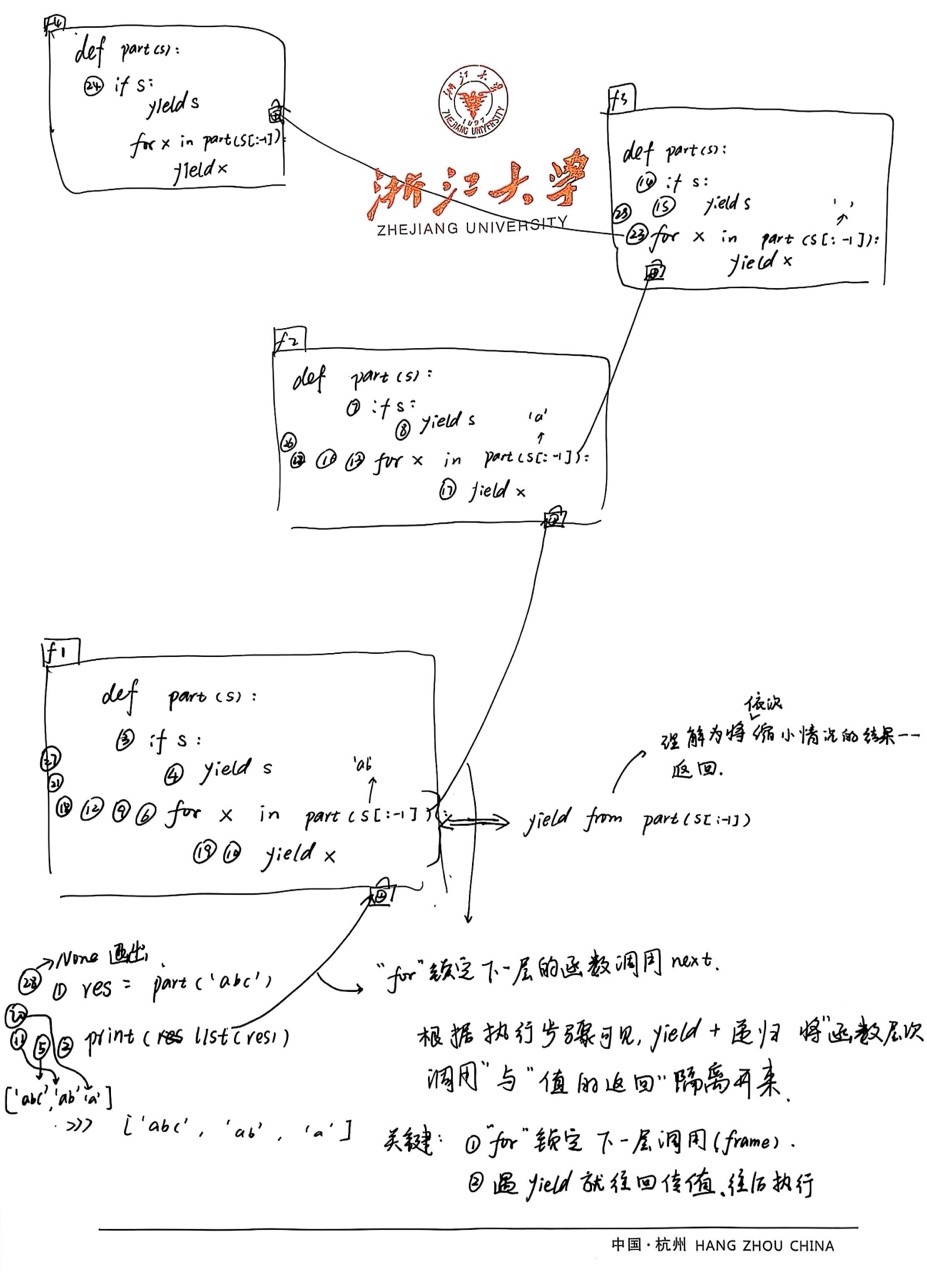 f4
def part(s):
㉔ if s:
yield s
for x in part(s[:-1]):
yield x
浙江大学
1897
ZHEJIANG UNIVERSITY
浙江大学
ZHEJIANG UNIVERSITY
f3
def part(s):
⑭ if s:
㉕ ⑮ yield s
' '
㉓ for x in part(s[:-1]):
yield x
f2
def part(s):
⑦ if s:
⑧ yield s
'a'
㉖
⑬ for x in part(s[:-1]):
⑰ yield x
f1
def part(s):
③ if s:
④ yield s
'ab'
㉗
㉑
⑱ ⑫ ⑨ ⑥ for x in part(s[:-1]):
⑲ ⑩ yield x
依次
理解为将缩小情况的结果一一
返回.
yield from part(s[:-1])
None 退出.
㉘ ① res = part('abc')
⑳ ⑪ ⑤ ② print(res list(res))
['abc','ab','a']
>>> ['abc', 'ab', 'a']
"for"锁定下一层的函数调用next.
根据执行步骤可见, yield + 递归 将"函数层次
调用"与"值的返回"隔离开来.
关键: ① "for"锁定下一层调用(frame).
② 遇yield就往回传值、往后执行
中国·杭州 HANG ZHOU CHINA